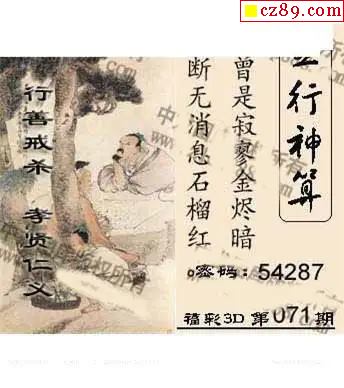 cz89.com
五行神算
曾是寂寥金烬暗
断无消息石榴红
密码：54287
福彩3D 第071期
行善戒杀 孝贤仁义